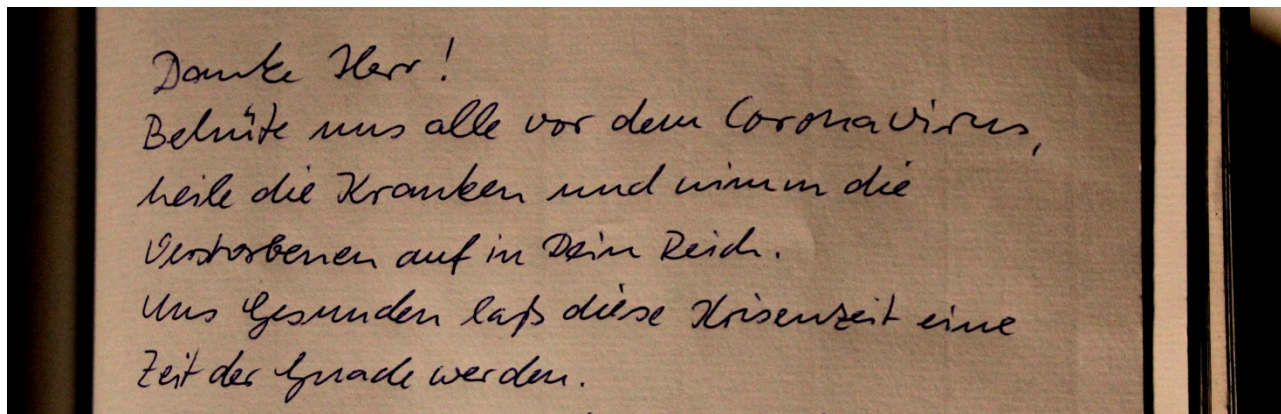 Danke Herr!
Behüte uns alle vor dem Coronavirus,
heile die Kranken und nimm die
Verstorbenen auf in Dein Reich.
Uns Gesunden laß diese Krisenzeit eine
Zeit der Gnade werden.